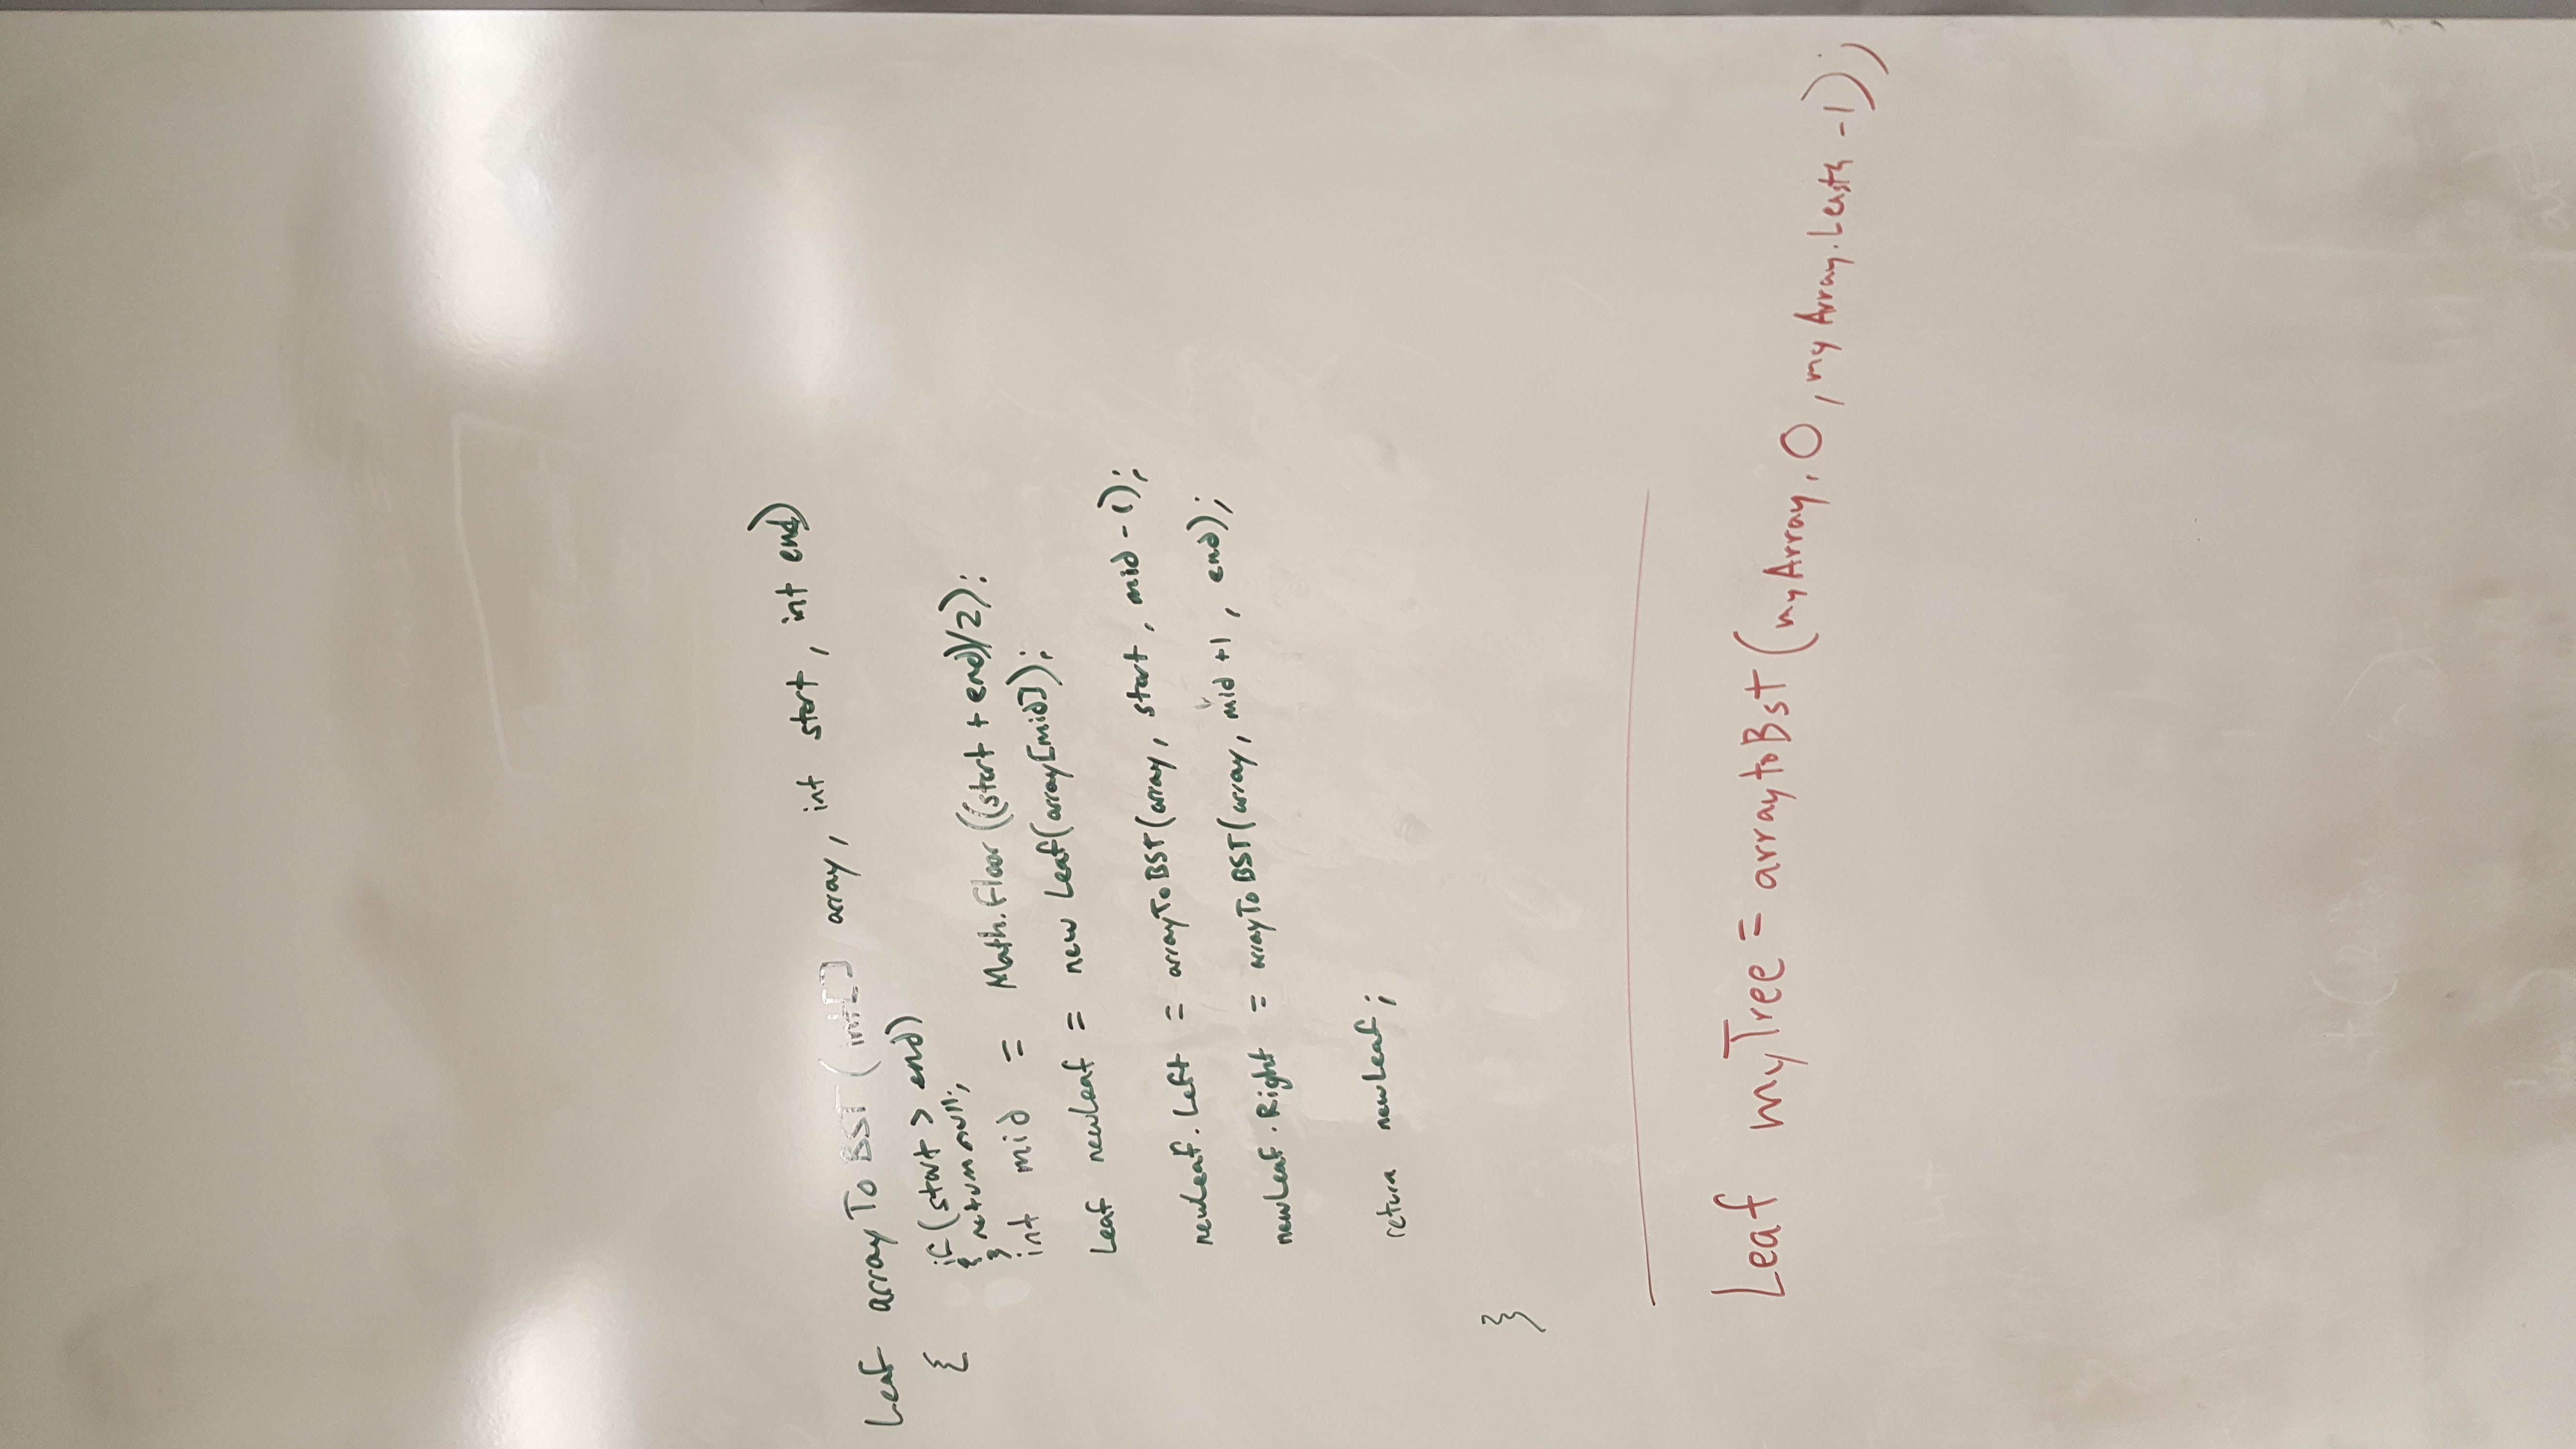 Leaf arrayToBST(int[] array, int start, int end)
{ if(start > end)
{ return null;
}
int mid = Math.Floor((start + end)/2);
Leaf newLeaf = new Leaf(array[mid]);
newLeaf.Left = arrayToBST(array, start, mid-1);
newLeaf.Right = arrayToBST(array, mid+1, end);
return newLeaf;
}
Leaf myTree = arraytoBst(myArray, 0, myArray.Length -1);